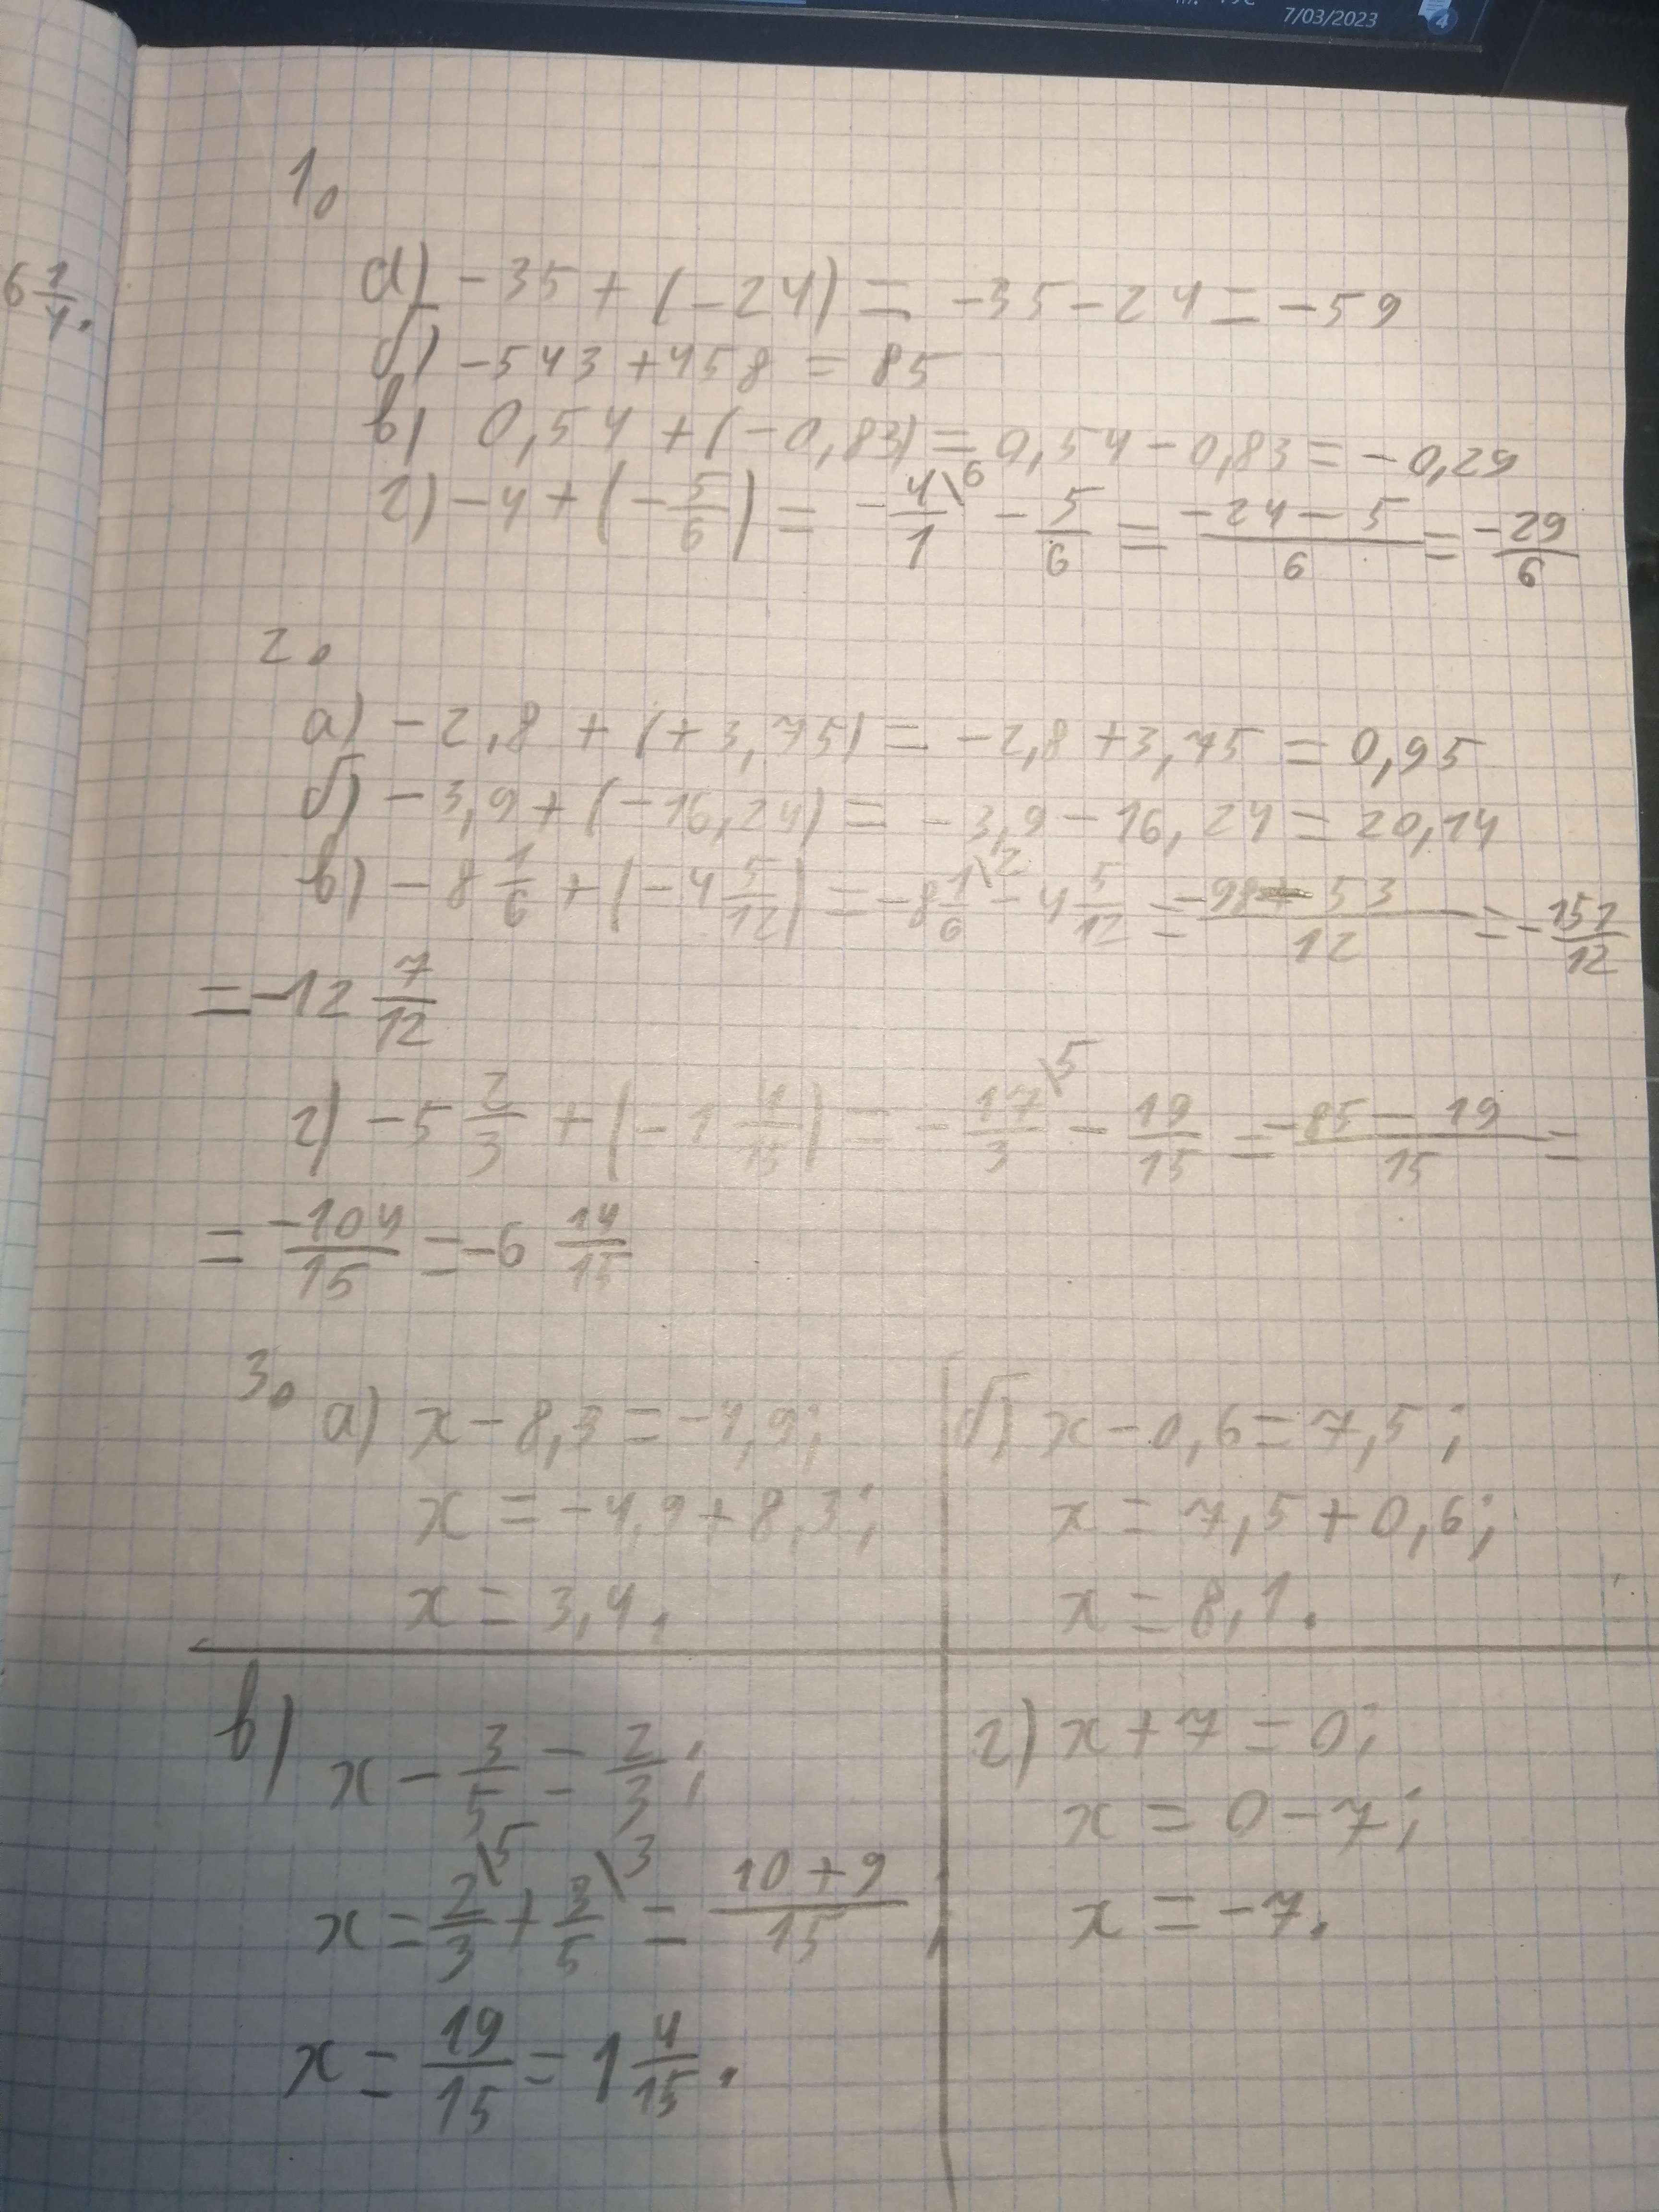 7/03/2023
4
6 1/4.
1.
а) -35 + (-24) = -35 - 24 = -59
б) -543 + 458 = 85
в) 0,54 + (-0,83) = 0,54 - 0,83 = -0,29
г) -4 + (-5/6) = -4/1\6 - 5/6 = (-24 - 5)/6 = -29/6
2.
а) -2,8 + (+3,75) = -2,8 + 3,75 = 0,95
б) -3,9 + (-16,24) = -3,9 - 16,24 = 20,14
в) -8 1/6 + (-4 5/12) = -8 1/6\2 - 4 5/12 = (-98 - 53)/12 = -151/12
= -12 7/12
г) -5 2/3 + (-1 4/15) = -17/3\5 - 19/15 = (-85 - 19)/15 =
= -104/15 = -6 14/15
3.
а) x - 8,3 = -4,9;
x = -4,9 + 8,3;
x = 3,4.
б) x - 0,6 = 7,5;
x = 7,5 + 0,6;
x = 8,1.
в) x - 3/5 = 2/3;
x = 2/3\5 + 3/5\3 = (10 + 9)/15;
x = 19/15 = 1 4/15.
г) x + 7 = 0;
x = 0 - 7;
x = -7.